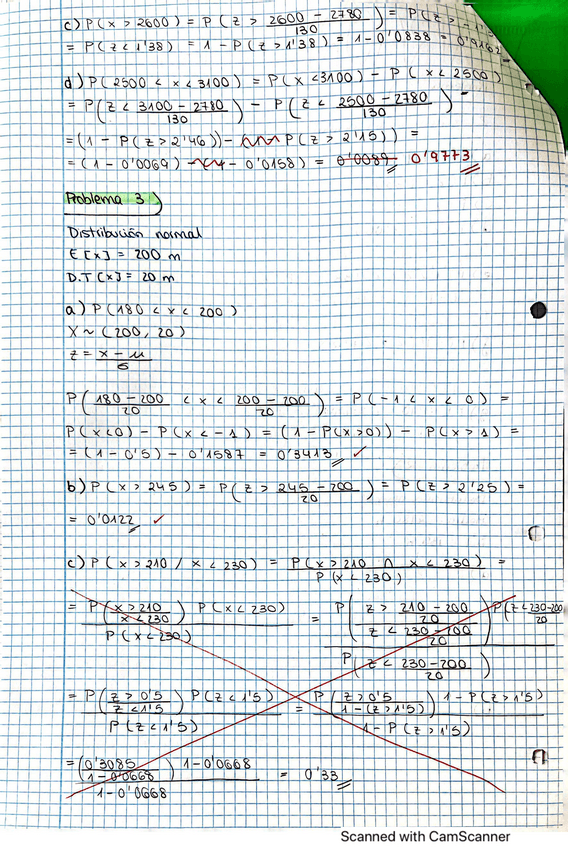 c) P(x > 2600) = P(z > 2600 - 2780 / 130) = P(z >
= P(z < 1'38) = 1 - P(z > 1'38) = 1 - 0'0838 = 0'9162
d) P(2500 < x < 3100) = P(x < 3100) - P(x < 2500)
= P(z < 3100 - 2780 / 130) - P(z < 2500 - 2780 / 130) =
= (1 - P(z > 2'46)) - P(z > 2'15)) =
= (1 - 0'0069) - 0'0158) = 0'0089 0'9773
Problema 3
Distribución normal
E[x] = 200 m
D.T[x] = 20 m
a) P(180 < x < 200)
X ~ (200, 20)
z = x - μ / σ
P(180 - 200 / 20 < x < 200 - 200 / 20) = P(-1 < x < 0) =
P(x < 0) - P(x < -1) = (1 - P(x > 0)) - P(x > 1) =
= (1 - 0'5) - 0'1587 = 0'3413 ✓
b) P(x > 245) = P(z > 245 - 200 / 20) = P(z > 2'25) =
= 0'0122 ✓
c) P(x > 210 / x < 230) = P(x > 210 ∩ x < 230) / P(x < 230) =
= P(x > 210 / x < 230) P(x < 230) / P(x < 230) = P(z > 210 - 200 / 20 / z < 230 - 200 / 20) P(z < 230 - 200 / 20 / P(z < 230 - 200 / 20)
= P(z > 0'5 / z < 1'5) P(z < 1'5) / P(z < 1'5) = P(z > 0'5 / 1 - (z > 1'5)) 1 - P(z > 1'5) / 1 - P(z > 1'5)
= (0'3085 / 1 - 0'0668) 1 - 0'0668 / 1 - 0'0668 = 0'33
Scanned with CamScanner